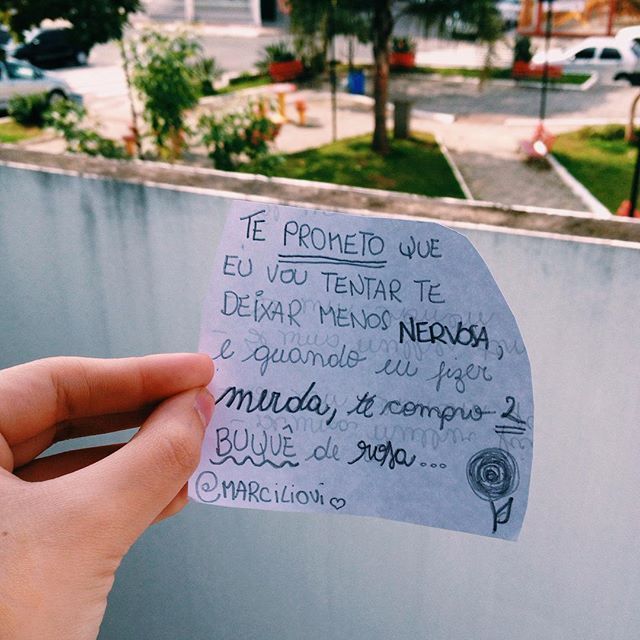 TE PROMETO QUE
EU VOU TENTAR TE
DEIXAR MENOS NERVOSA,
e quando eu fizer
merda, te compro 2
BUQUÊ de rosa...
@MARCILIOVI♡